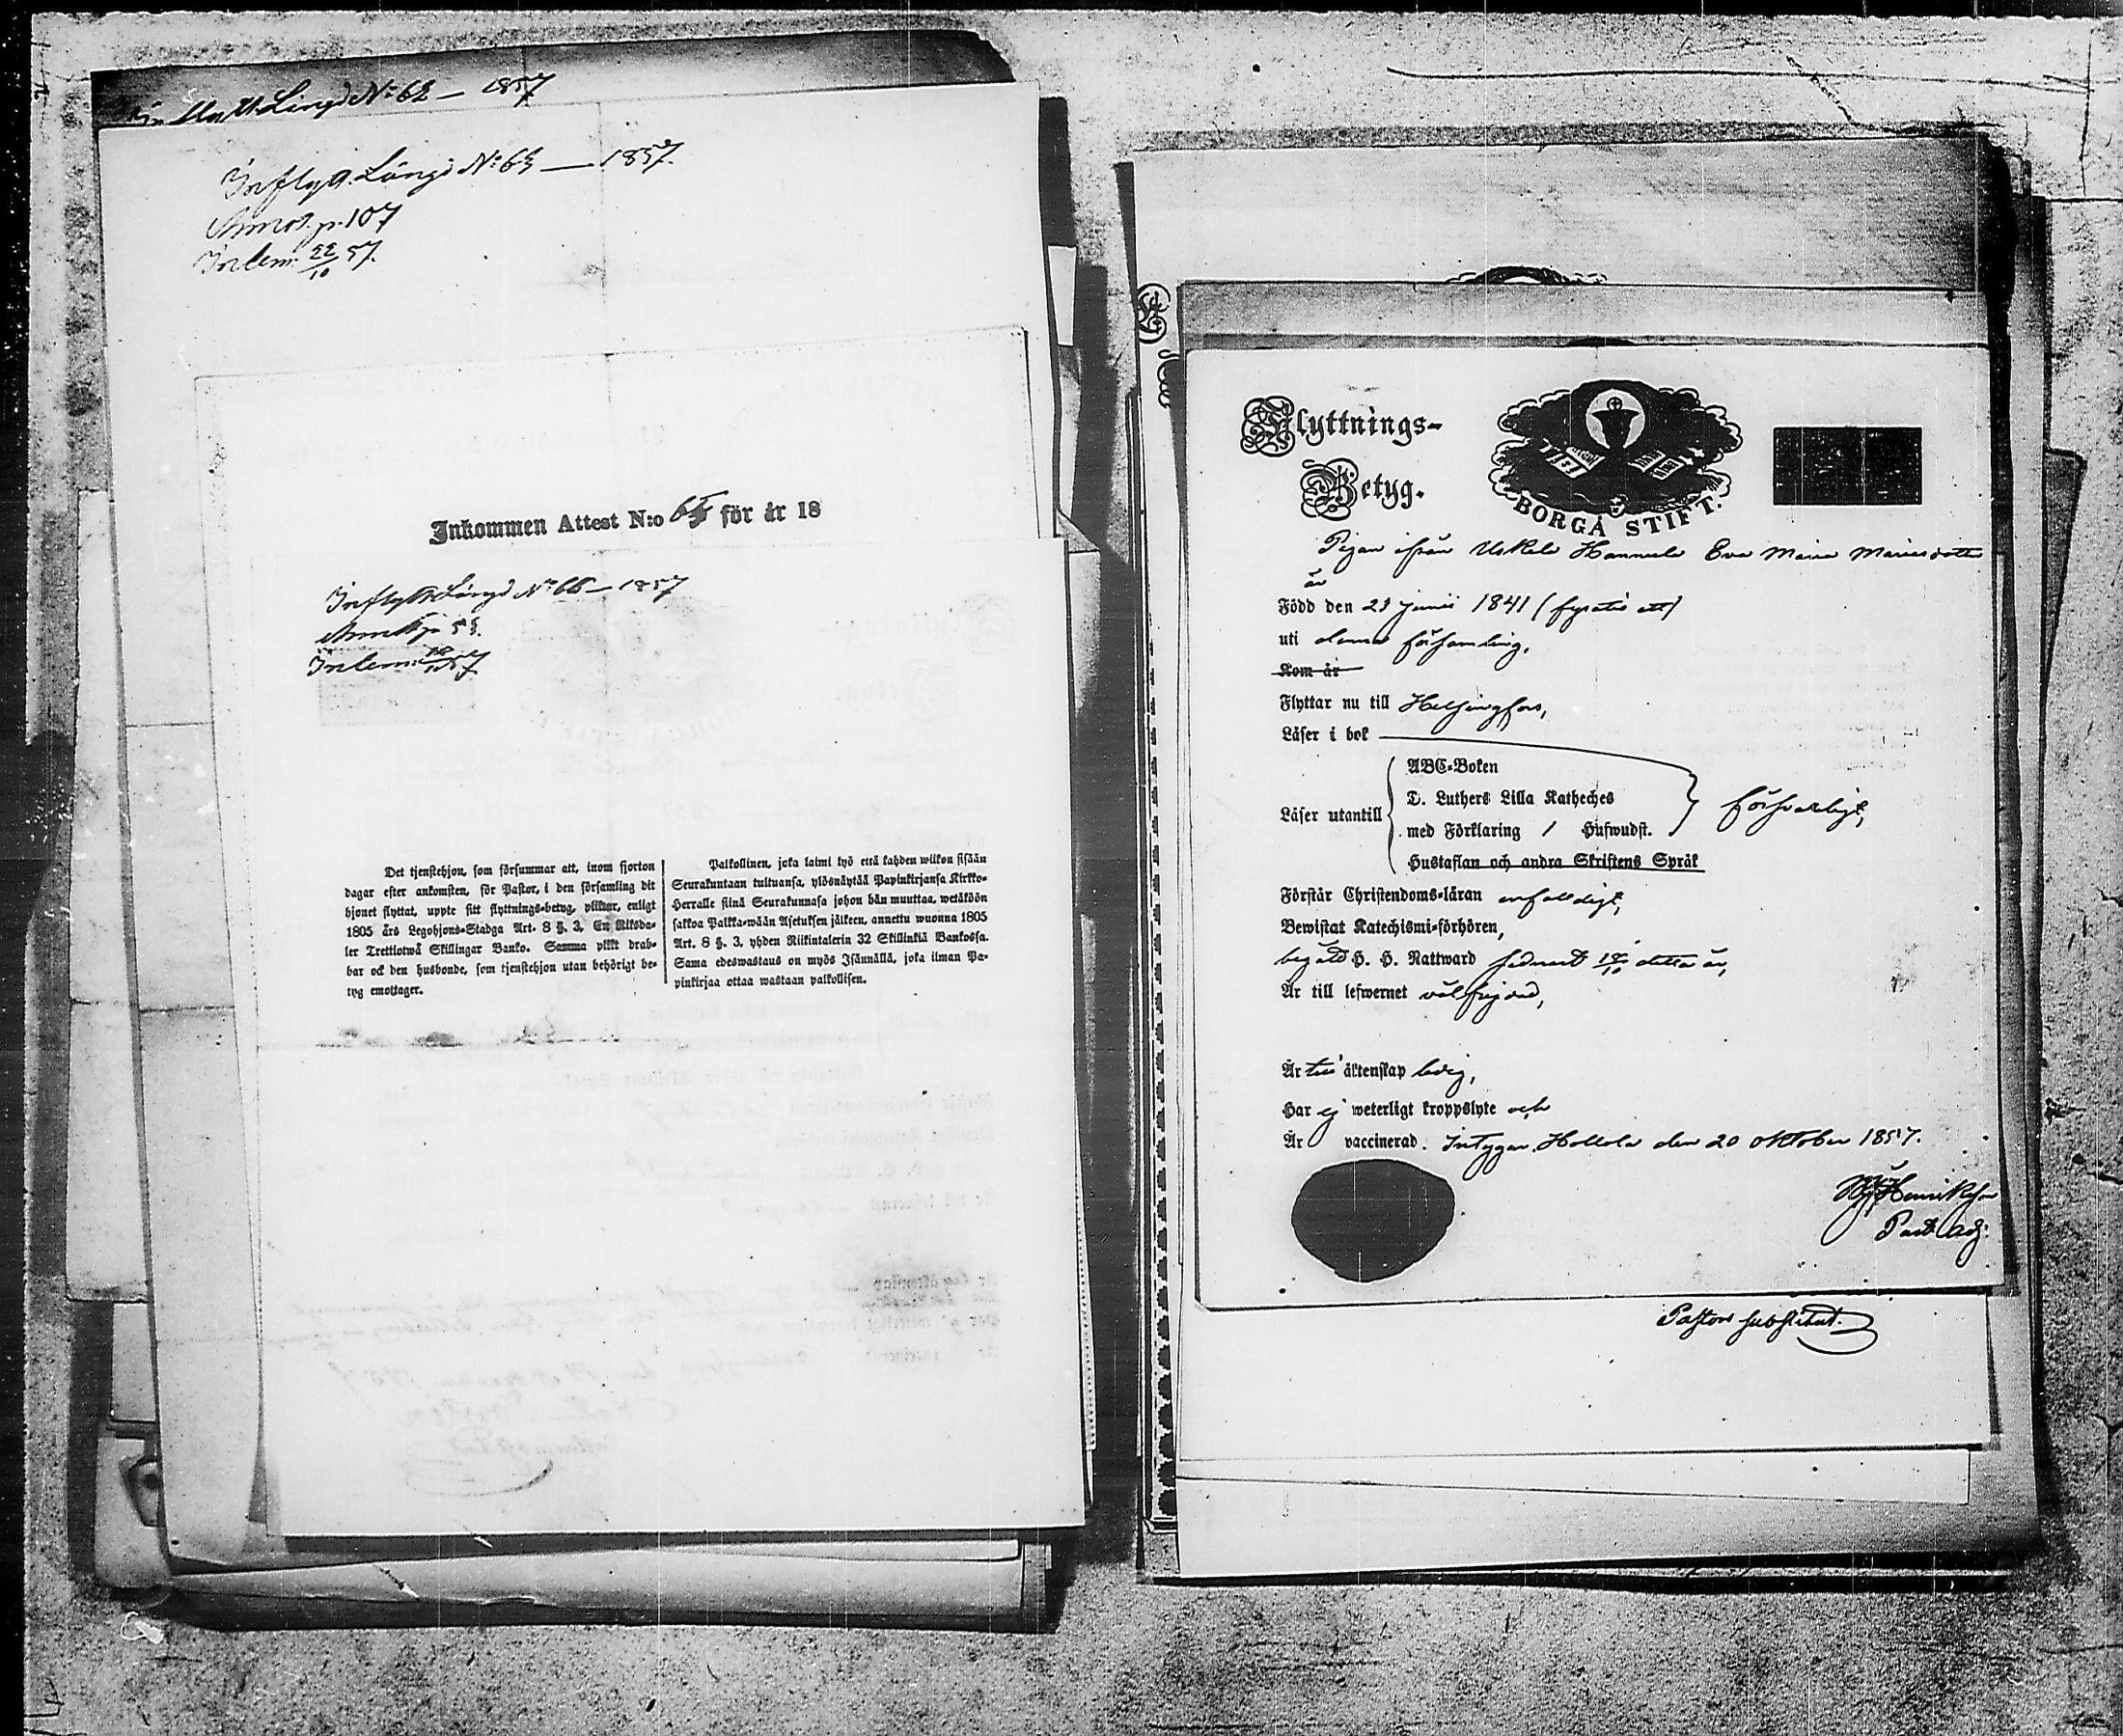 Inflytt. Längd No: 62 — 1857
Inflytt. Längd No: 63 — 1857.
p. 107
Inlem. 22/10 57.
Inkommen Attest N:o 65 för år 18
Inflytt. Längd No 66 — 1857
Inlem.
Det tjenstehjon, som försummar att, inom fjorton
dagar efter ankomsten, för Pastor, i den församling dit
hjonet flyttat, uppte sitt flyttnings-betyg, pliktar, enligt
1805 års Legohjons-Stadga Art. 8 §. 3, En Riksda-
ler Trettiotwå Skillingar Banko. Samma plikt drab-
bar ock den husbonde, som tjenstehjon utan behörigt be-
tyg emottager.
Palkollinen, joka laimi lyö että kahden wiikon sisään
Seurakuntaan tultuansa, ylösnäytää Papinkirjansa Kirkko-
Herralle siinä Seurakunnasa johon hän muuttaa, wetäköön
sakkoa Palkka-wään Asetuksen jälkeen, annettu wuonna 1805
Art. 8 §. 3, yhden Riikintalerin 32 Skillinkiä Bankossa.
Sama edeswastaus on myös Isännällä, joka ilman Pa-
pinkirjaa ottaa wastaan palkollisen.
Flyttnings-
Betyg.
BORGÅ STIFT.
Pigan ifrån Uskila Hannula Eva Maria Mariasdotter
är
Född den 21 Junii 1841 (fyratio ett)
uti denna församling.
Kom år
Flyttar nu till Helsingfors,
Läser i bok
Läser utantill
ABC-Boken
D. Luthers Lilla Katheches
med Förklaring 1 Hufwudst.
Hustaflan och andra Skriftens Språk
försvarligt,
Förstår Christendoms-läran enfaldigt,
Bewistat Katechismi-förhören,
begått H. H. Nattward sednast 18/10 detta år,
Är till lefwernet välfrejdad,
Är till äktenskap ledig,
Har ej weterligt kroppslyte och
Är vaccinerad. Intygar. Hollola den 20 oktober 1857.
Henriksson
Past. Adj.
Pastors substitut.